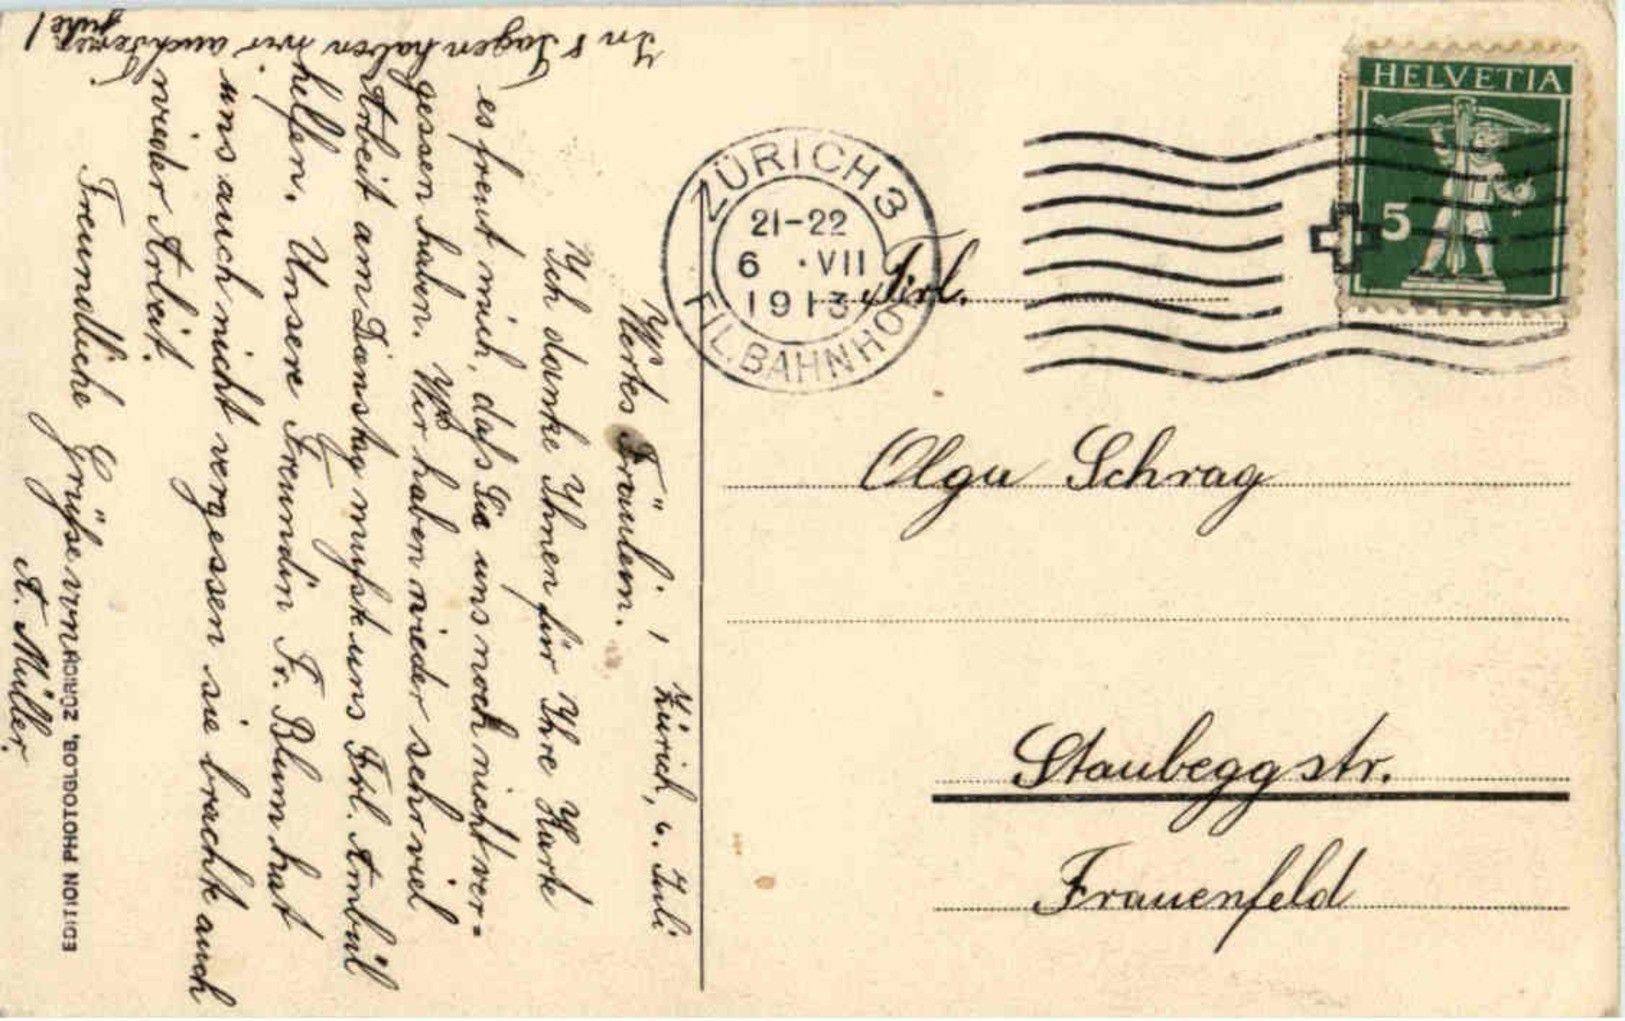 Zürich, 6. Juli
Wertes Fräulein.
Ich danke Ihnen für Ihre Karte
es freut mich, daſs Sie uns noch nicht ver=
gessen haben. Wir haben wieder sehr viel
Arbeit am Dienstag muſste uns Frl. Ambül
helfen. Unsere Freundin Fr. Blum hat
uns auch nicht vergessen sie brachte auch
wieder Arbeit.
Freundliche Grüſse von
A. Müller.
In 8 Tagen haben wir auch Ferien
HELVETIA
5
ZÜRICH 3
21-22
6 ·VII
1913
FIL. BAHNHOF
Frl.
Olga Schrag
Staubeggstr.
Frauenfeld
EDITION PHOTOGLOB, ZÜRICH